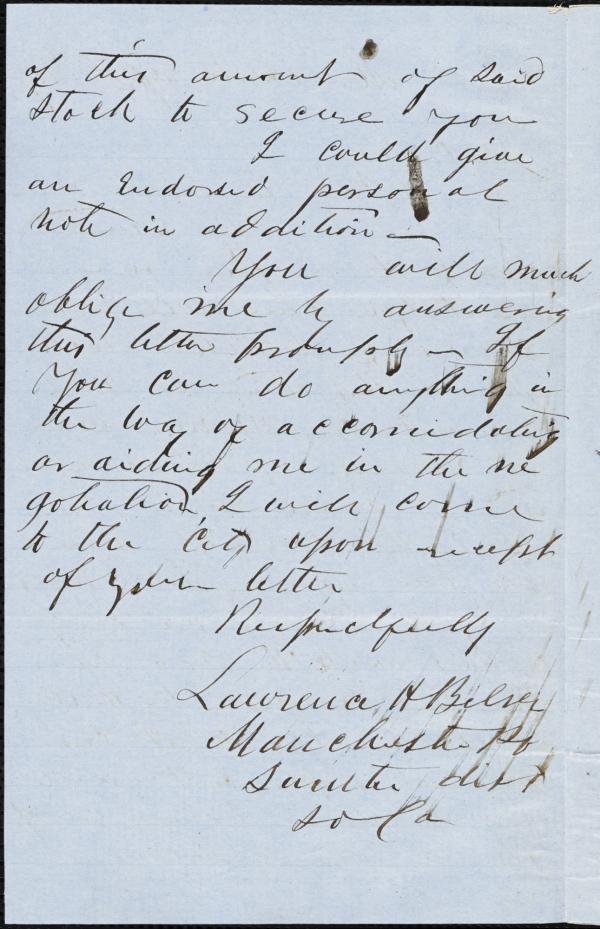 of this amount of said
stock to secure you
I could give
an Endorsed personal
note in addition —
You will much
oblige me by answering
this letter promptly — If
You can do anything in
the way of accomidating
or aiding me in the ne
gotiation, I will come
to the City upon receipt
of your letter
Respectfully
Lawrence H Belser
Manchester Po
Sumter dist
So Ca